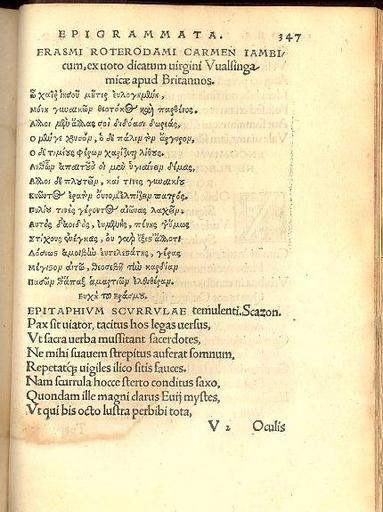 EPIGRAMMATA. 347
ERASMI ROTERODAMI CARMEN IAMBI/
cum, ex uoto dicatum uirgini Vualsinga/
micæ apud Britannos.
Ω χαῖρ' ἰησοῦ μῆτερ εὐλογημένη,
Μόνη γυναικῶν θεοτόκος καὶ παρθένος.
Ἄλλοι μὲν ἄλλας σοι διδόασι δωρεάς,
Ὁ μέν γε χρυσόν, ὁ δὲ πάλιν τὸν ἄργυρον,
Ὁ δὲ τιμίους φέρων χαρίζεται λίθους.
Ἀνθ' ὧν ἀπαιτοῦσ' οἱ μὲν ὑγιαίνειν δέμας,
Ἄλλοι δὲ πλουτεῖν, καί τινες γυναικίου
Αὐτὸς δ' ἀοιδός, εὐμενής, πένης γ' ὅμως
Στίχους ἐνέγκας, οὐ γὰρ ἔξεστ' ἄλλο τι
Λόσιν ἀμοιβὴν εὐτελεστάτης, γέρας
Μέγιστον αἰτῶ, θεοσεβῆ τὴν καρδίαν
Πασῶν θ' ἅπαξ ἁμαρτιῶν ἐλευθέραν.
Εὐχὴ τοῦ ἐράσμου.
EPITAPHIVM SCVRRVLAE temulenti. Scazon.
Pax sit uiator, tacitus hos legas uersus,
Vt sacra uerba mussitant sacerdotes,
Ne mihi suauem strepitus auferat somnum,
Repetatq; uigiles ilico sitis fauces.
Nam scurrula hocce sterto conditus saxo,
Quondam ille magni clarus Euij mystes,
Vt qui bis octo lustra perbibi tota,
V 2 Oculis